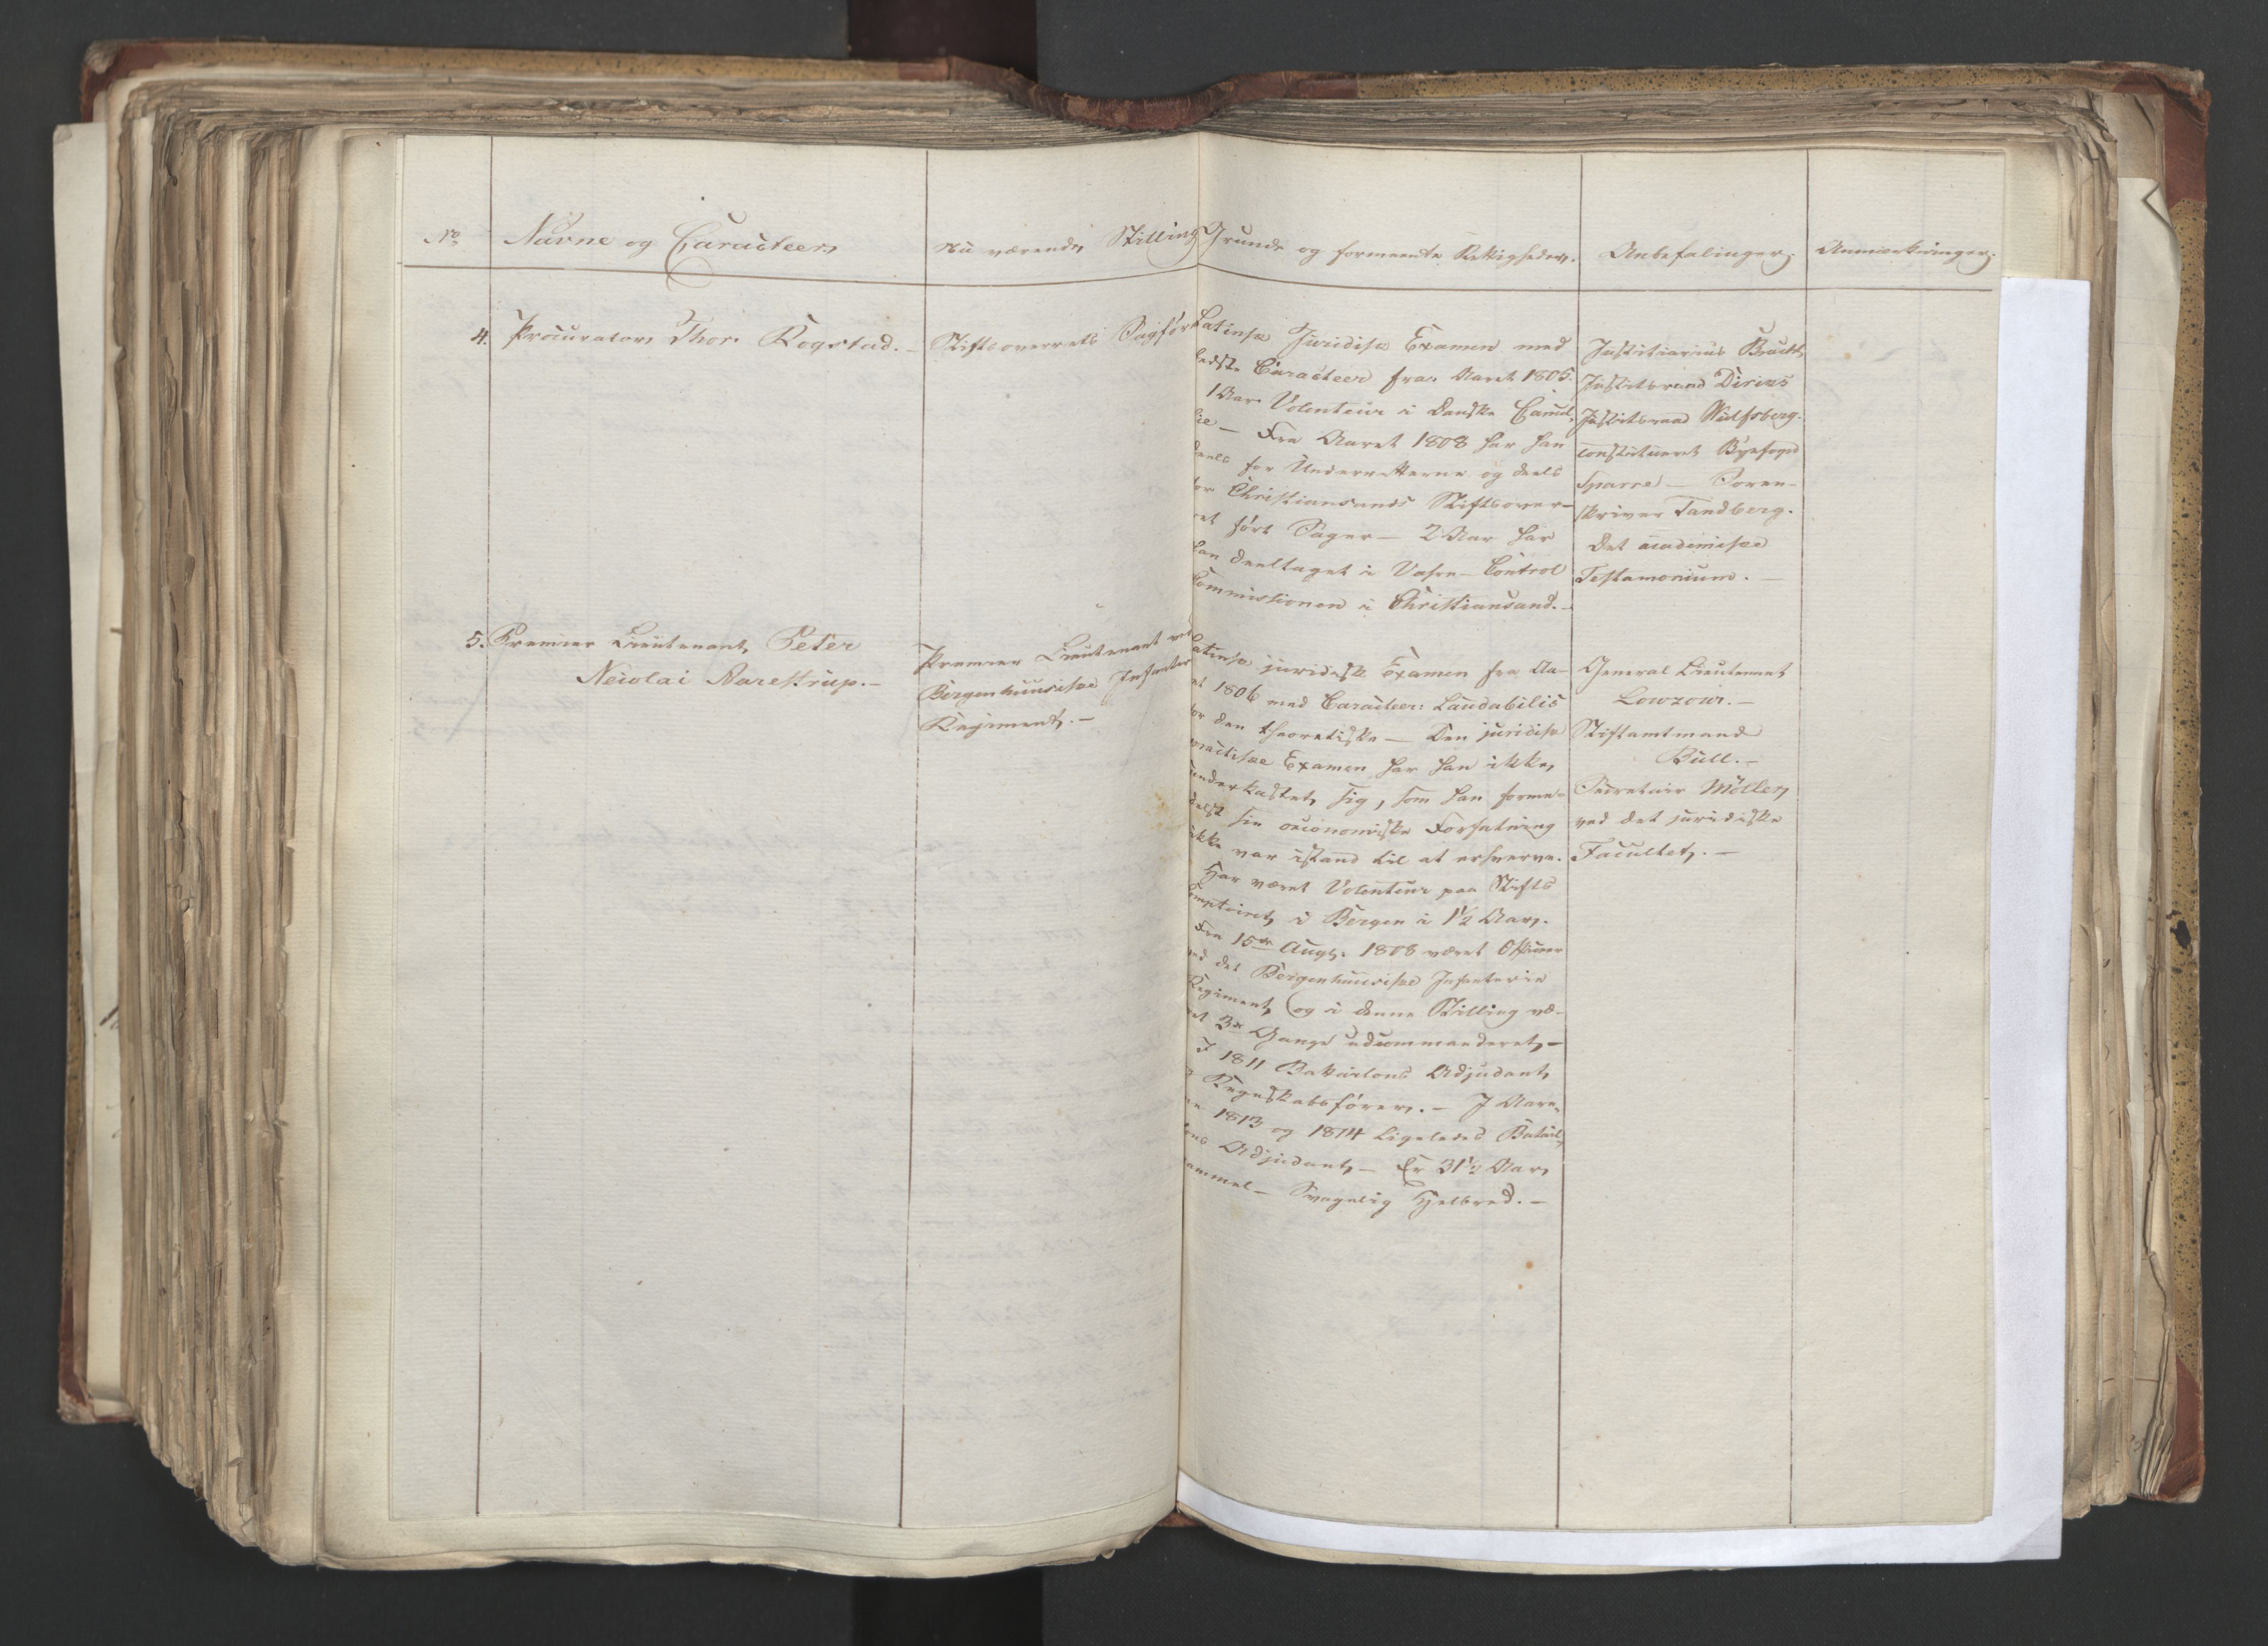 No
Navne og Caracteer,
Nu værende Stilling
Grunde og formeente Rettigheder.
Anbefalinger.
Anmærkninger.
4. Procurator Thor Rogstad. —
Stiftsoverrets Sagfør
Latinsk Juridisk Examen med
bedste Caracteer fra Aaret 1805.
1 Aar Volonteur i danske Cancel,
lie — Fra Aaret 1808 har han
deels for Underretterne og deels
for Christiansands Stiftsover-
ret ført Sager — 2 Aar har
han deeltaget i Vahre-Control
Commissionen i Christiansand. —
Justitiarius
Justitsraad
Justitsraad Wulfsberg.
constitueret Byefoged
Sparre — Soren-
skriver Tandberg.
Det academiske
Testamonium. —
5. Premier Lieutenant Peter
Nicolai Aarestrup. —
Premier Lieutenant ved
Bergenhuusiske Infanterie
Regiment. —
Latinsk juridisk Examen fra Aa-
ret 1806 med Caracteer: Laudabilis
for den theoretiske — Den juridisk
practiske Examen har han ikke
underkastet sig, som han forme-
delst sin oeconomiske Forfatning
ikke var istand til at erhverve.
Har været Volonteur paa Stifts
Comptoiret i Bergen i 1½ Aar.
Fra 15de Augt. 1808 været Officeer
ved det Bergenhuusiske Infanterie
Regiment, og i denne Stilling væ-
ret 3de Gange udcommanderet, —
I 1811 Batailons Adjudant
og Regnskabsfører. — I Aare-
ne 1813 og 1814 ligeledes Batail-
lons Adjudant — Er 31½ Aar
gammel — Svagelig Helbred. —
General Lieutenant
Lowzow. —
Stiftamtmand
Bull. —
Secretair Møller
ved det juridiske
Facultet. —